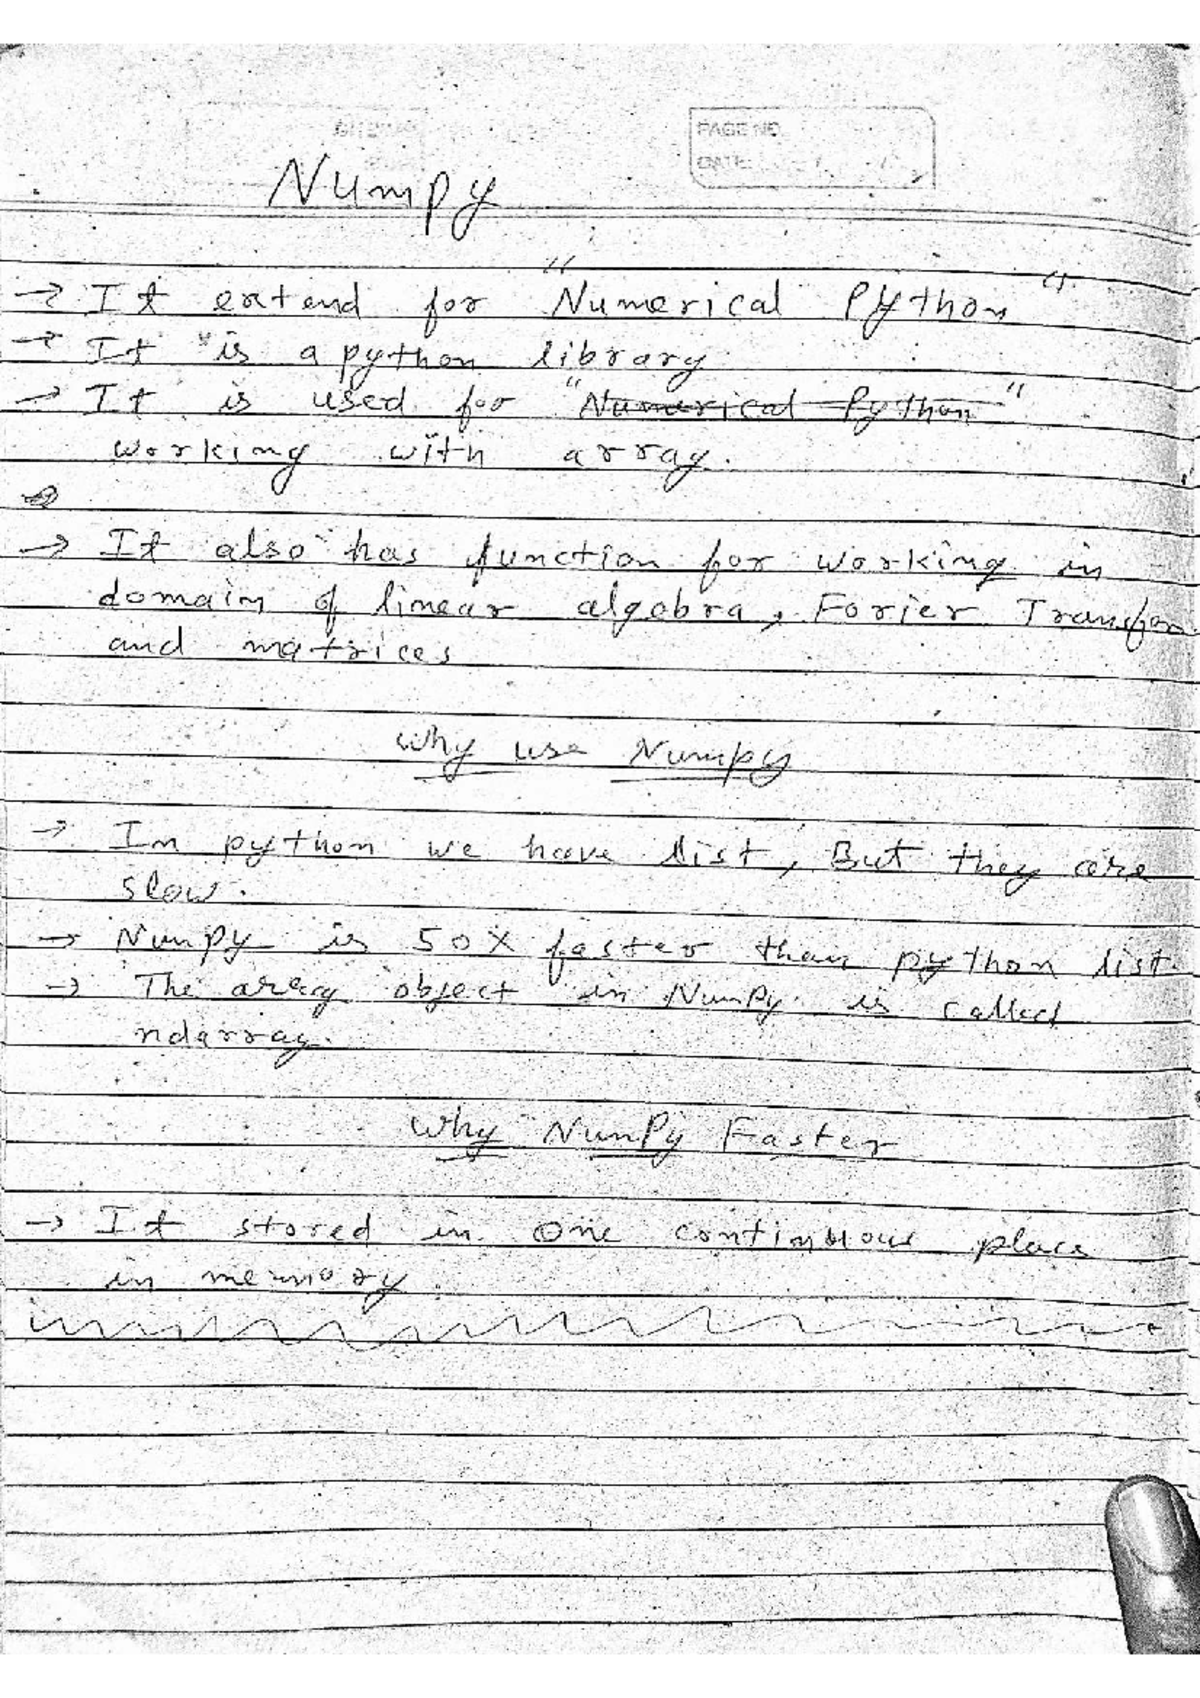 PAGE NO.
DATE:
Numpy
→ It extend for "Numerical Python"
→ It is a python library
→ It is used for "Numerical Python"
working with array.
→ It also has function for working in
domain of linear algebra, Forier Transfor
and matrices
Why use Numpy
→ In python we have list, But they are
slow.
→ Numpy is 50X faster than python list.
→ The array object in NumPy is called
ndarray.
Why NumPy Faster
→ It stored in one continuous place
in memory.